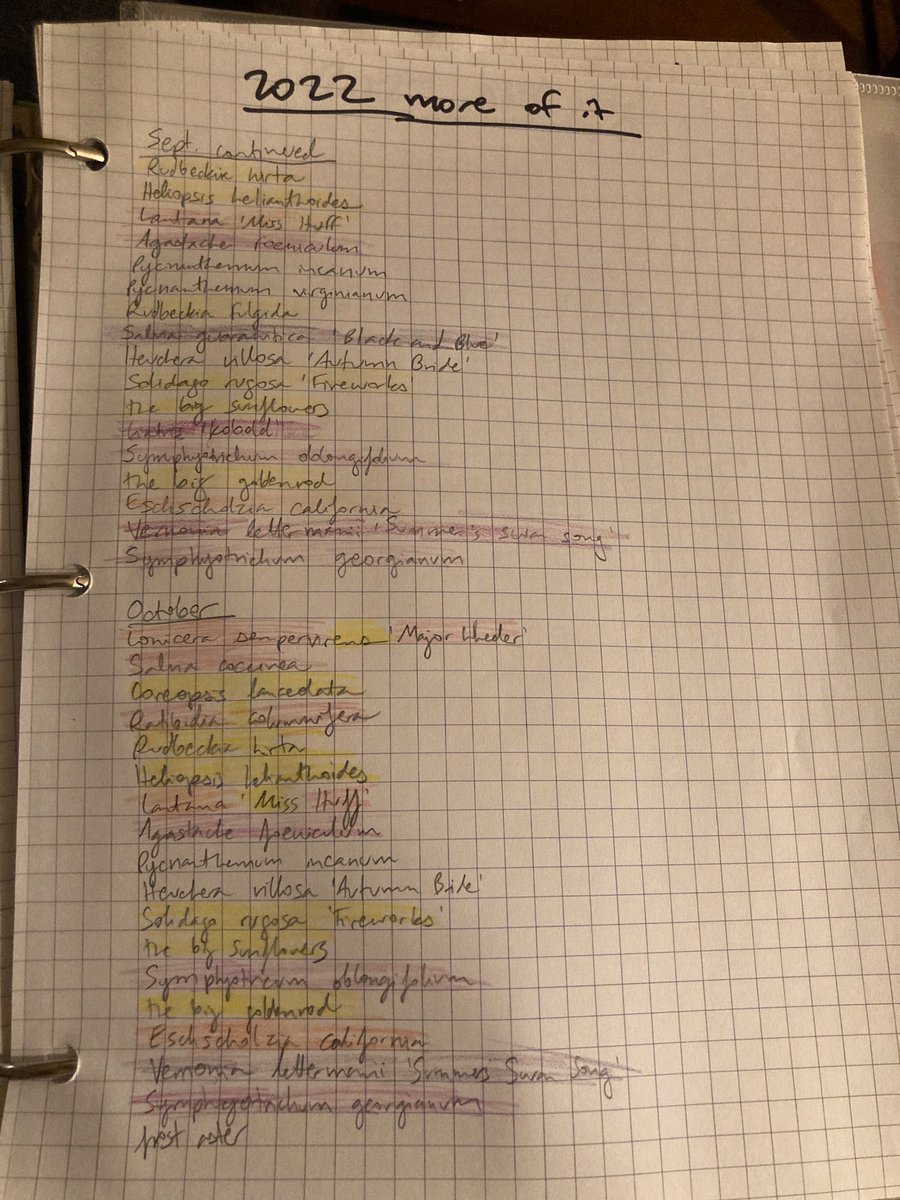 2022 more of it
Sept. continued
Rudbeckia hirta
Heliopsis helianthoides
Lantana 'Miss Huff'
Agastache foeniculum
Pycnanthemum incanum
Pycnanthemum virginianum
Rudbeckia fulgida
Salvia guaranitica 'Black and Blue'
Heuchera villosa 'Autumn Bride'
Solidago rugosa 'Fireworks'
the big sunflowers
Liatris 'Kobold'
Symphyotrichum oblongifolium
the big goldenrod
Eschscholzia california
Vernonia lettermanii 'Summer's Swan Song'
Symphyotrichum georgianum
October
Lonicera sempervirens 'Major Wheeler'
Salvia coccinea
Coreopsis lanceolata
Ratibida columnifera
Rudbeckia hirta
Heliopsis helianthoides
Lantana 'Miss Huff'
Agastache foeniculum
Pycnanthemum incanum
Heuchera villosa 'Autumn Bride'
Solidago rugosa 'Fireworks'
the big sunflowers
Symphyotricum oblongifolium
the big goldenrod
Eschscholzia california
Vernonia lettermanii 'Summer's Swan Song'
Symphyotrichum georgianum
frost aster